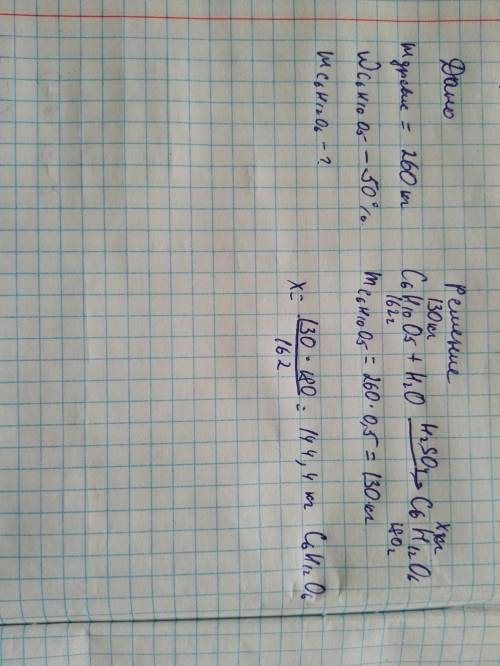 Дано
m древес = 260 кг
W C6H10O5 – 50%.
m C6H12O6 – ?
Решение
130 кг X кг
C6H10O5 + H2O H2SO4→ C6H12O6
162г 180г
m C6H10O5 = 260 · 0,5 = 130 кг
X = 130 · 180 / 162 = 144,4 кг C6H12O6